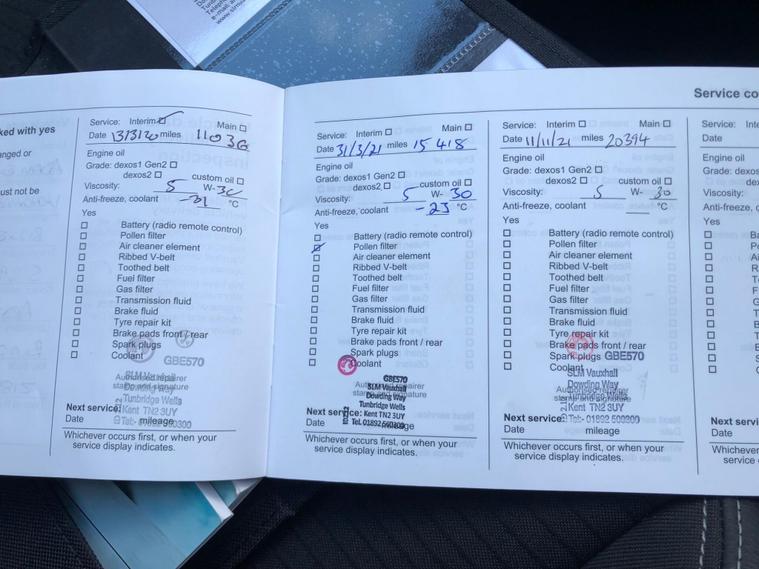 Service co
ked with yes
anged or
ust not be
Service: Interim Main
Date 13/3/20 miles 11036
Engine oil
Grade: dexos1 Gen2
dexos2 custom oil
Viscosity: 5 W- 30
Anti-freeze, coolant -21 °C
Yes
Battery (radio remote control)
Pollen filter
Air cleaner element
Ribbed V-belt
Toothed belt
Fuel filter
Gas filter
Transmission fluid
Brake fluid
Tyre repair kit
Brake pads front / rear
Spark plugs
Coolant
GBE570
SLM Vauxhall
Authorised repairer
stamp and signature
Dowding Way
Tunbridge Wells
Next service: Kent TN2 3UY
Date mileage
Whichever occurs first, or when your
service display indicates.
Service: Interim Main
Date 31/3/21 miles 15418
Engine oil
Grade: dexos1 Gen2
dexos2 custom oil
Viscosity: 5 W- 30
Anti-freeze, coolant -23 °C
Yes
Battery (radio remote control)
Pollen filter
Air cleaner element
Ribbed V-belt
Toothed belt
Fuel filter
Gas filter
Transmission fluid
Brake fluid
Tyre repair kit
Brake pads front / rear
Spark plugs
Coolant
GBE570
SLM Vauxhall
Dowding Way
Tunbridge Wells
Next service: Kent TN2 3UY
Date Tel. 01892 600300 mileage
Whichever occurs first, or when your
service display indicates.
Service: Interim Main
Date 11/11/21 miles 20394
Engine oil
Grade: dexos1 Gen2
dexos2 custom oil
Viscosity: 5 W- 30
Anti-freeze, coolant °C
Yes
Battery (radio remote control)
Pollen filter
Air cleaner element
Ribbed V-belt
Toothed belt
Fuel filter
Gas filter
Transmission fluid
Brake fluid
Tyre repair kit
Brake pads front / rear
Spark plugs GBE570
Coolant
SLM Vauxhall
Dowding Way
Tunbridge Wells
Kent TN2 3UY
Next service: Tel:- 01892 600300
Date mileage
Whichever occurs first, or when your
service display indicates.
Service: Inte
Date
Engine oil
Grade: dexos
Viscosity:
Anti-freeze, c
Yes
Next servi
Date
Whichever
service